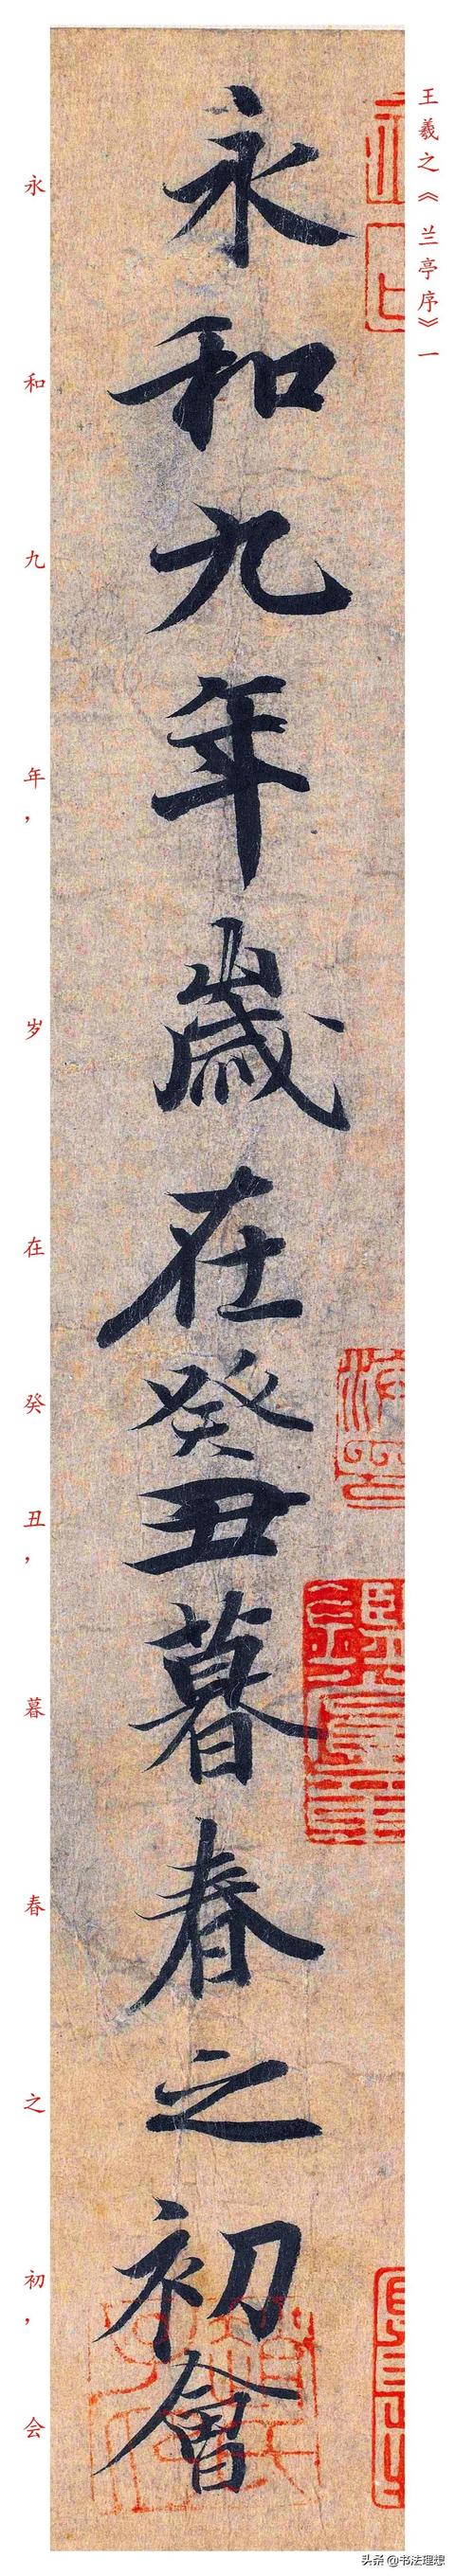 王羲之《兰亭序》一
永和九年歲在癸丑暮春之初會
永和九年，岁在癸丑，暮春之初，会
头条 @书法理想